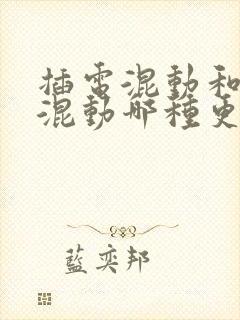 插電混動和
混動哪種更
藍奕邦